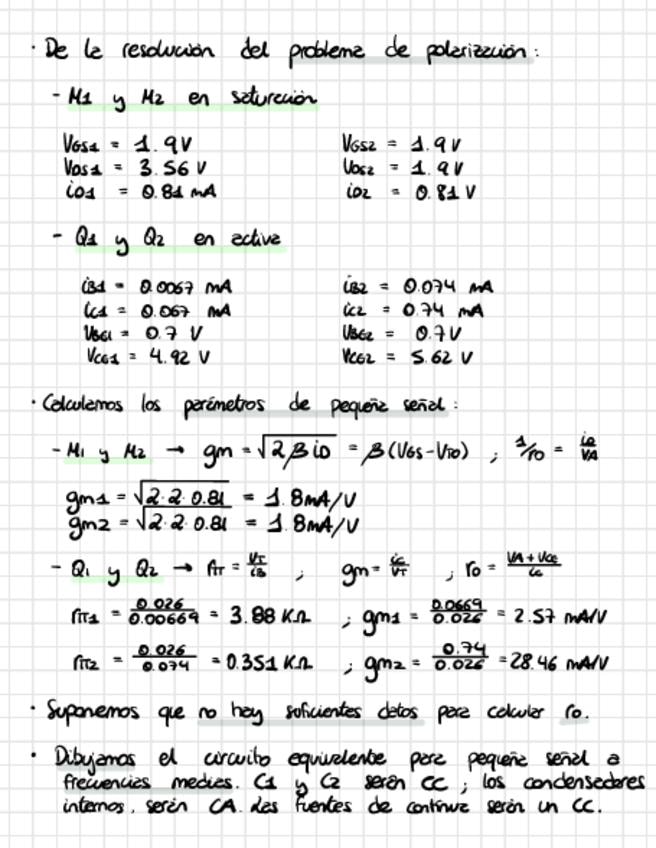 · De la resolución del problema de polarización:
- M1 y M2 en saturación
VGS1 = 1.9V VGS2 = 1.9V
VDS1 = 3.56 V VDS2 = 1.9V
iD1 = 0.81 mA iD2 = 0.81 V
- Q1 y Q2 en activa
iB1 = 0.0067 mA iB2 = 0.074 mA
iC1 = 0.067 mA iC2 = 0.74 mA
VBE1 = 0.7 V VBE2 = 0.7V
VCE1 = 4.92 V VCE2 = 5.62 V
· Calculamos los parámetros de pequeña señal:
- M1 y M2 → gm = √(2βiD) = β(VGS-VT0) ; 1/ro = iD/VA
gm1 = √(2·2·0.81) = 1.8mA/V
gm2 = √(2·2·0.81) = 1.8mA/V
- Q1 y Q2 → rπ = VT/iB ; gm = iC/VT ; ro = (VA+VCE)/iC
rπ1 = 0.026/0.00669 = 3.88 KΩ ; gm1 = 0.0669/0.026 = 2.57 mA/V
rπ2 = 0.026/0.074 = 0.351 KΩ ; gm2 = 0.74/0.026 = 28.46 mA/V
· Suponemos que no hay suficientes datos para calcular ro.
· Dibujamos el circuito equivalente para pequeña señal a
frecuencias medias. C1 y C2 serán CC ; los condensadores
internos, serán CA. Las fuentes de continua serán un CC.